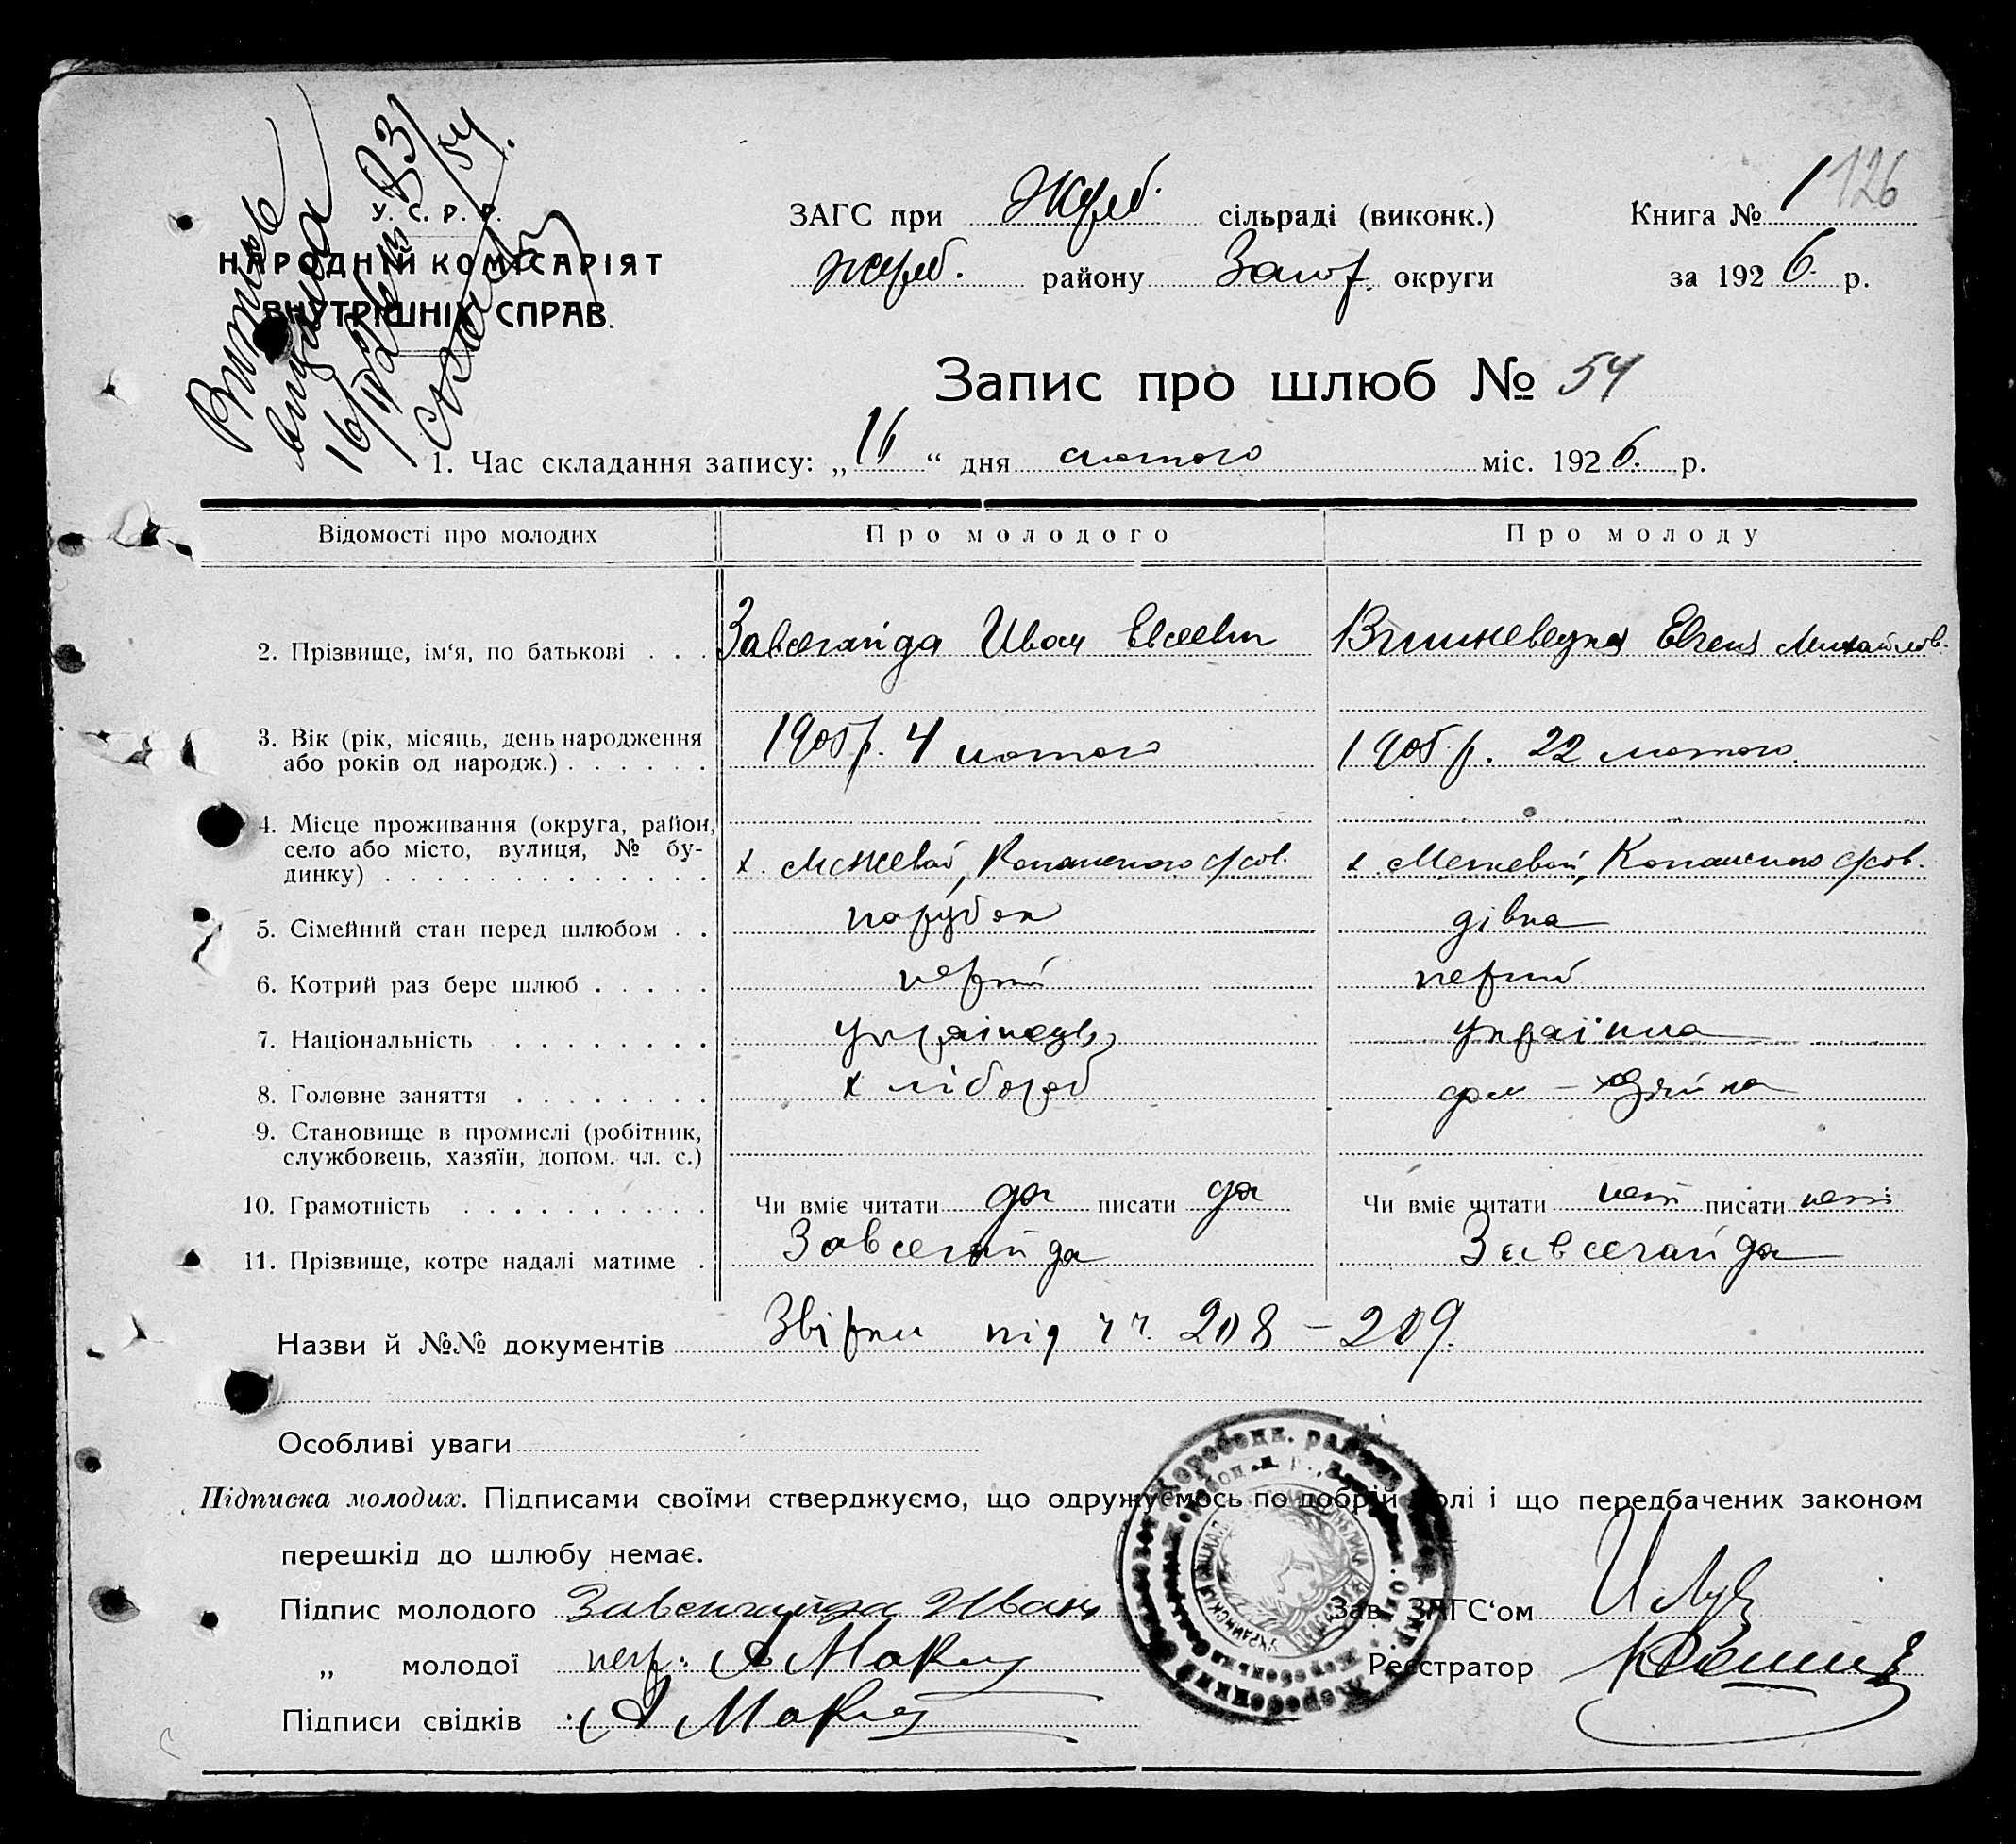 126
У. С. Р. Р.
НАРОДНІЙ КОМІСАРІЯТ
ВНУТРІШНІХ СПРАВ.
Витяг
видана
16/IV
ЗАГС при Жереб. сільраді (виконк.) Книга № 1
Жереб. району Запор. округи за 1926 р.
Запис про шлюб № 54
1. Час складання запису: „16“ дня лютого міс. 1926. р.
Відомості про молодих Про молодого Про молоду
2. Прізвище, ім‘я, по батькові Завсегайда Иван Евсеевич Вишневецка Евгения Михайлов.
3. Вік (рік, місяць, день народження 1905 р. 4 лютого 1905 р. 22 лютого.
або років од народж.)
4. Місце проживання (округа, район,
село або місто, вулиця, № бу- х. Межевой, Копанского с/сов. х. Межевой, Копанского с/сов.
динку)
5. Сімейний стан перед шлюбом парубок дівка
6. Котрий раз бере шлюб перший перший
7. Національність українець українка
8. Головне заняття хлібороб дом-хазяйка
9. Становище в промислі (робітник,
службовець, хазяїн, допом. чл. с.)
10. Грамотність Чи вміє читати да писати да Чи вміє читати нет писати нет
11. Прізвище, котре надалі матиме Завсегайда Завсегайда
Назви й №№ документів Звірки під чч. 208 – 209.
Особливі уваги
Підписка молодих. Підписами своїми стверджуємо, що одружуємось по добрій волі і що передбачених законом
перешкід до шлюбу немає.
Підпис молодого Завсегайда Иван Зав. ЗАГС‘ом
„ молодої А Макт Реєстратор
Підписи свідків А Макт